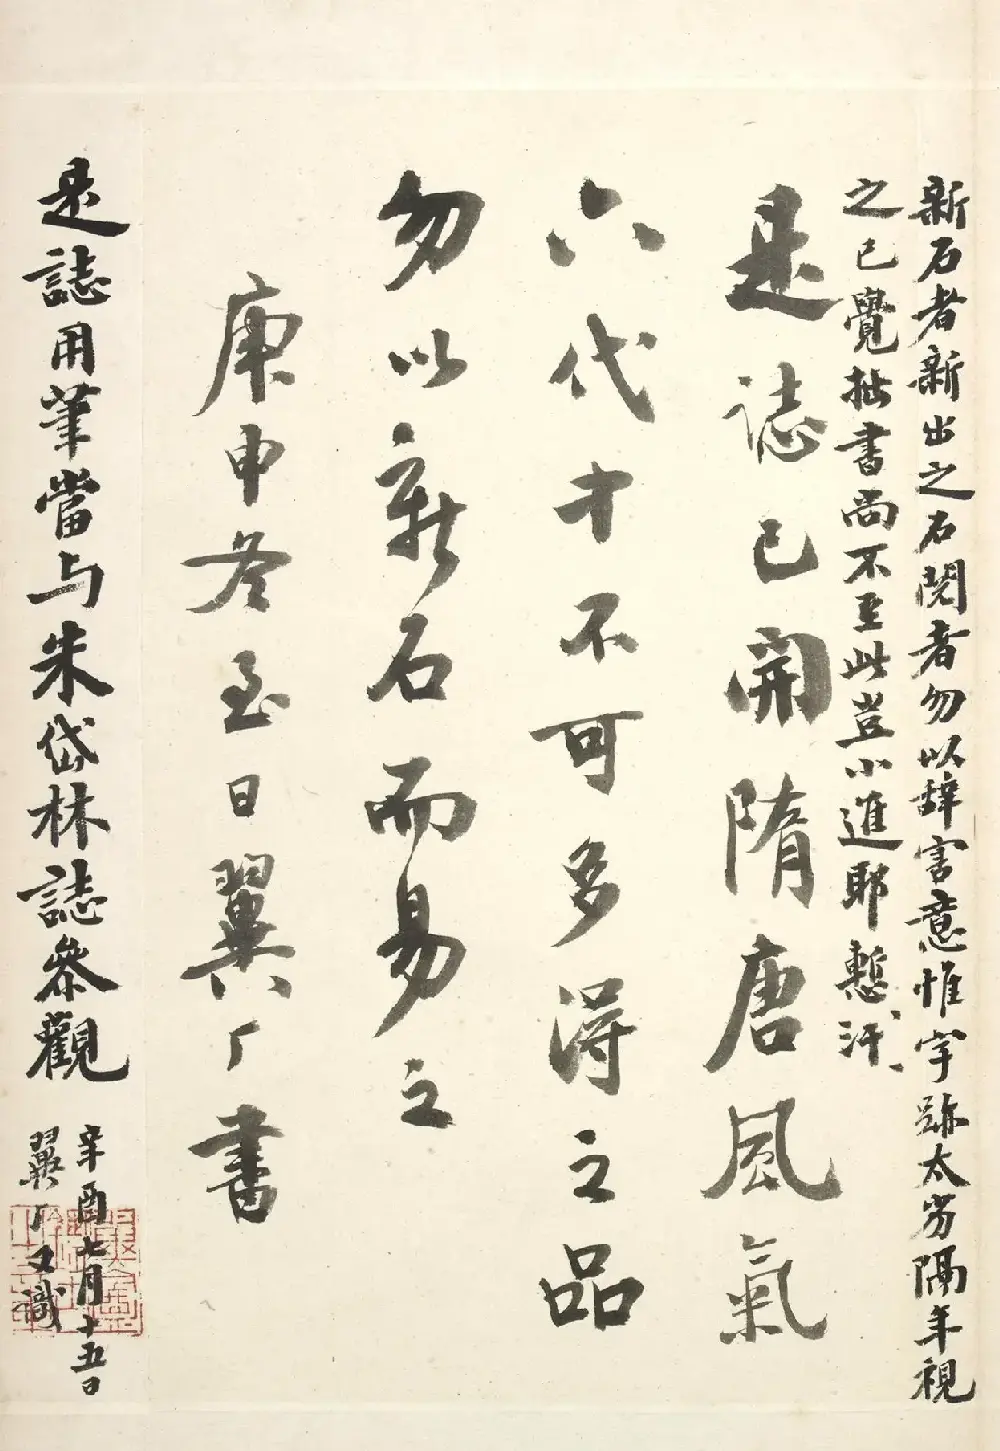 新石者新出之石閱者勿以辭害意惟字跡太劣隔年視
之已覺拙書尚不至此豈小進耶慙汗
是誌已開隋唐風氣
六代中不可多得之品
勿以新石而易之
庚申冬至日翼厂書
是誌用筆當与朱岱林誌參觀
辛酉七月十五日
翼厂又識